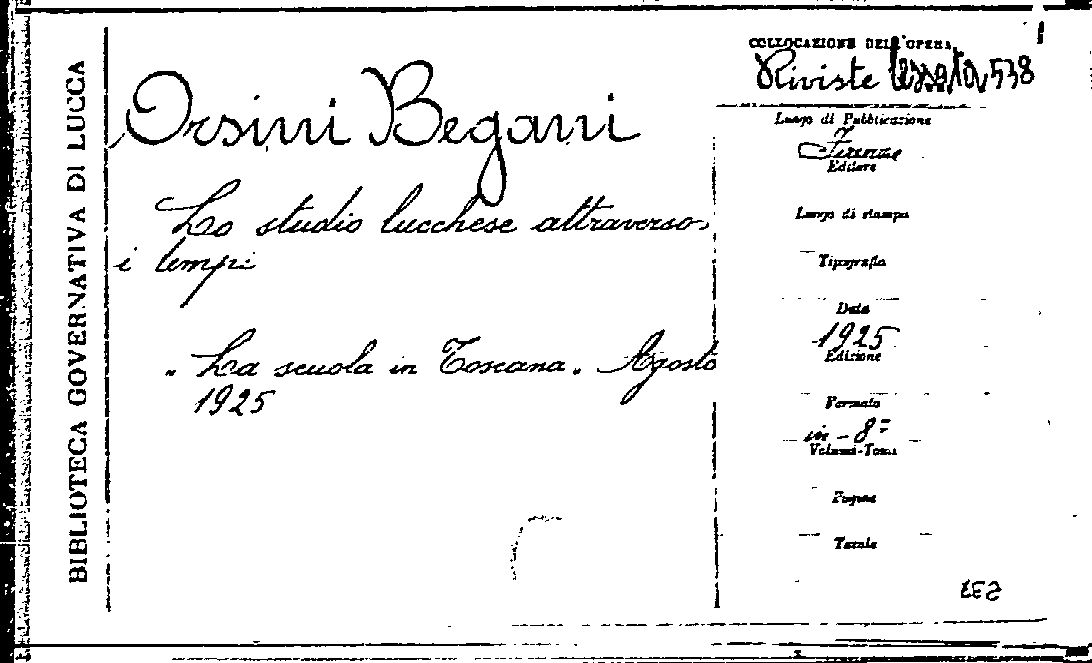 BIBLIOTECA GOVERNATIVA DI LUCCA
Orsini Begani
Lo studio lucchese attraverso
i tempi
"La scuola in Toscana". Agosto
1925
COLLOCAZIONE DELL'OPERA
Riviste 538
Luogo di Pubblicazione
Firenze
Editore
Luogo di stampa
Tipografia
Data
1925
Edizione
Formato
in-8°
Volumi-Tomi
Pagine
Tavole